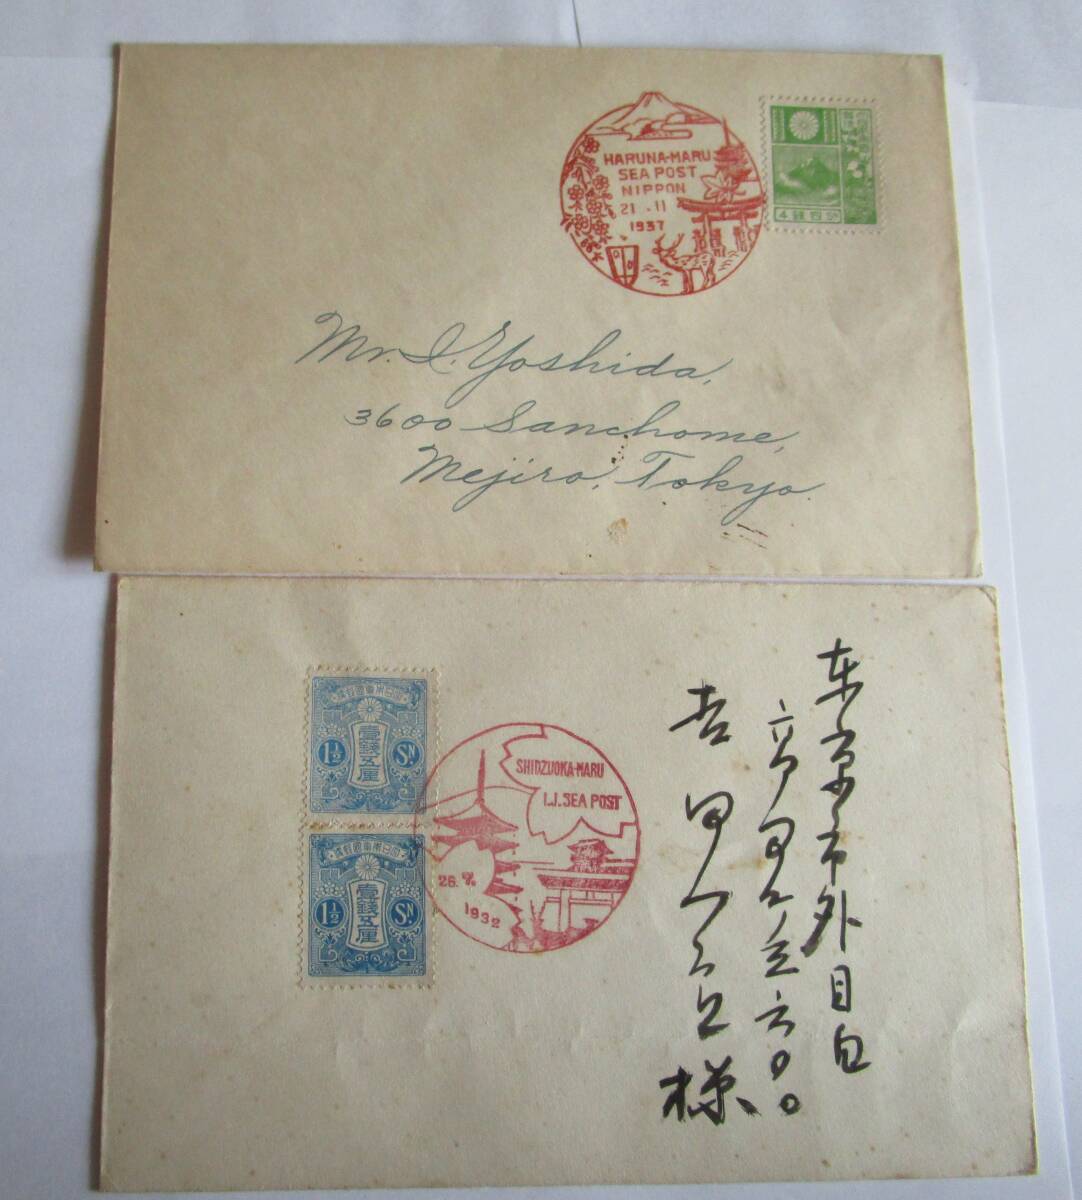 HARUNA-MARU
SEA POST
NIPPON
21 . 11
1937
4 銭四
Mr. I. Yoshida,
3600 Sanchome,
Mejiro, Tokyo.
大日本帝国郵便
1½ 壹錢五厘 SN.
大日本帝国郵便
1½ 壹錢五厘 SN.
SHIDZUOKA-MARU
I.J. SEA POST
26.
1932
东京市外目白
三六〇〇
吉田
様